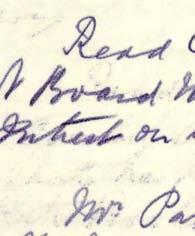 Read
Board
Interest on
Mr Pa